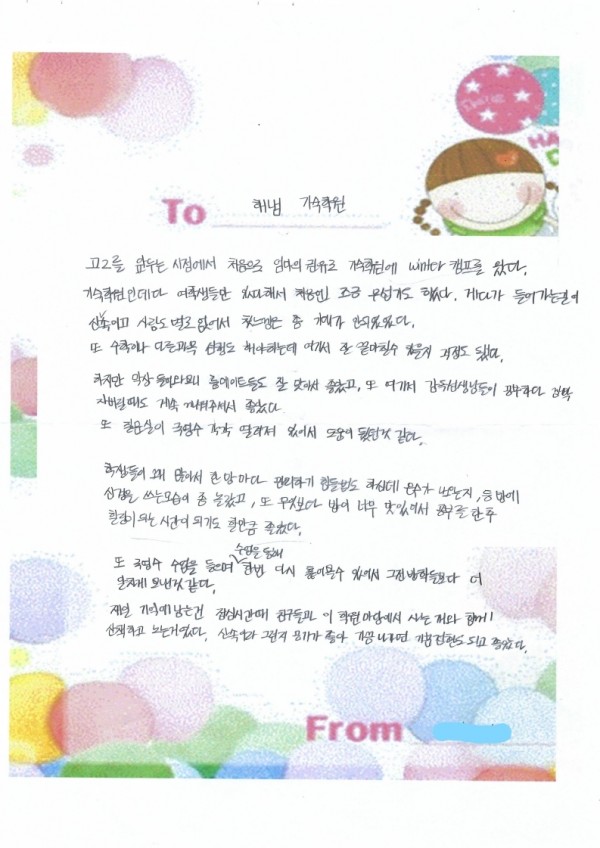 HA
D
To 해냄 기숙학원
고2를 앞두는 시점에서 처음으로 엄마의 권유로 기숙학원에 winter 캠프를 왔다.
기숙학원인데다 여학생들만 있다해서 처음엔 조금 무섭기도 했다. 게다가 들어가는길이
산속이고 사람도 별로 없어서 첫느낌은 좀 기대가 안되었었다.
또 수학이나 다른과목 선행도 해야하는데 여기서 잘 끝마칠수 있을지 걱정도 됐다.
하지만 막상 들어와보니 룸메이트들도 잘 맞아서 좋았고, 또 여기서 감독선생님들이 공부하다 깜빡
자버릴때도 계속 깨워주셔서 좋았다.
또 질문실이 국영수 각각 딸려져 있어서 도움이 됐던것 같다.
학생들이 꽤 많아서 한명마다 관리하기 힘들법도 하신데 점수가 나쁜지, 응답에
신경을 쓰는모습이 좀 놀랐고, 또 무엇보다 밥이 너무 맛있어서 공부를 한후
힐링이 되는 시간이 되기도 할만큼 좋았다.
또 국영수 수업을 들으며 수업을 통해 한번 다시 풀어볼수 있어서 그전 방학들보다 더
알차게 보낸것 같다.
제일 기억에 남는건 점심시간때 친구들과 이 학원 마당에서 사는 개와 함께
산책하고 노는거였다. 산속이라 그런지 공기가 좋아 기분나쁘면 기분전환도 되고 좋았다.
From